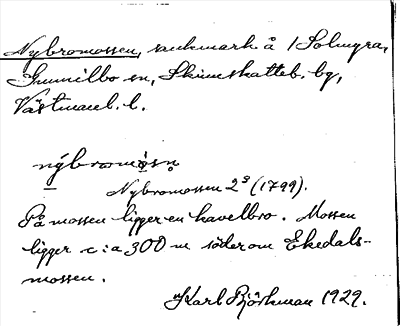 Nybromossen, sankmark å 1 Solmyra,
Gunnilbo sn, Skinnskatteb. bg,
Västmanl. l.
nýbromòsn̥
Nybromossen 2⁸ (1799).
På mossen ligger en kavelbro. Mossen
ligger c:a 300 m söder om Ekedals-
mossen.
Karl Björkman 1929.